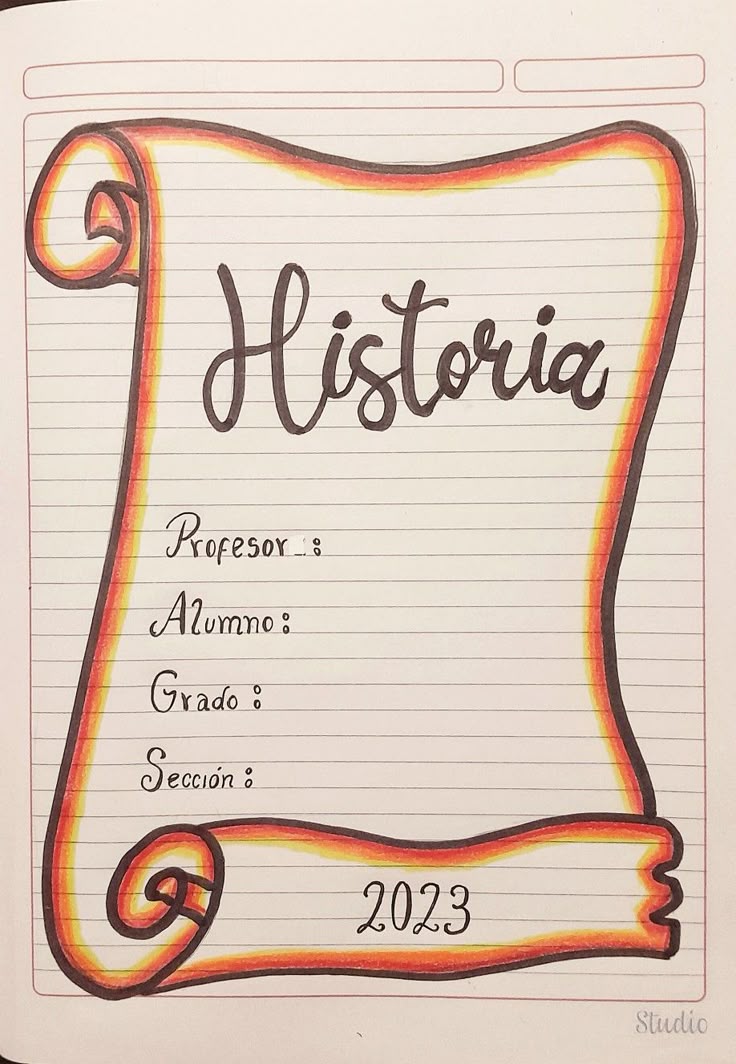 Historia
Profesor :
Alumno :
Grado :
Sección :
2023
Studio